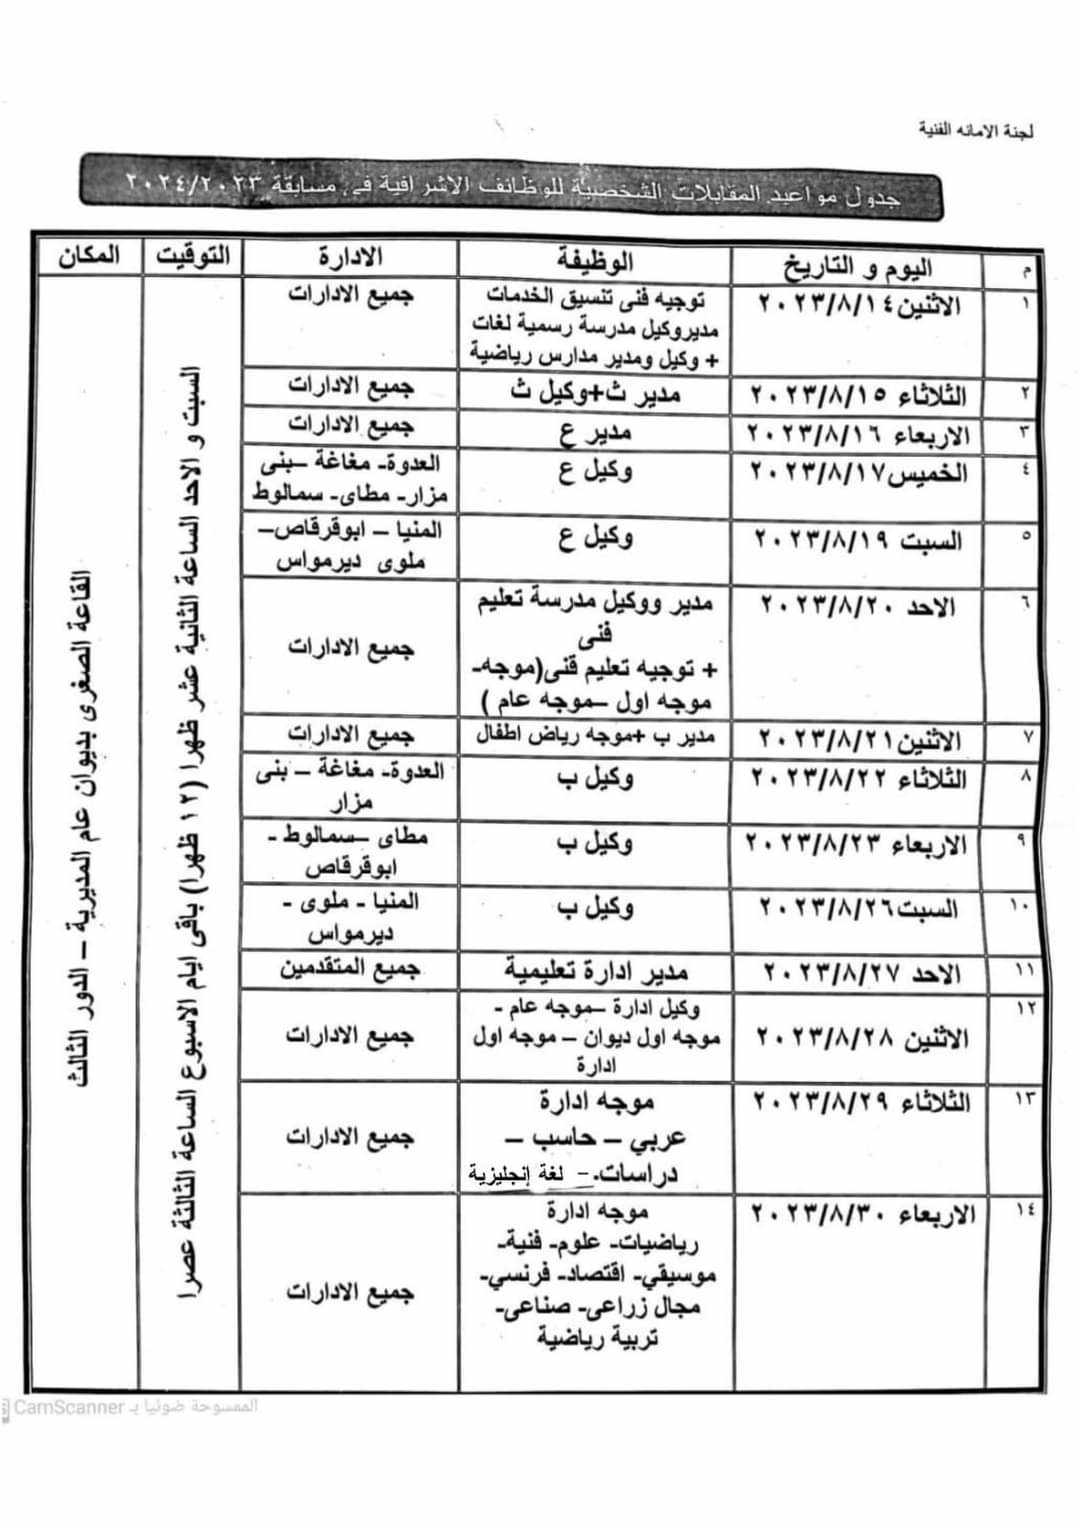 لجنة الامانه الفنية
جدول مواعيد المقابلات الشخصية للوظائف الاشرافية فى مسابقة ٢٠٢٤/٢٠٢٣
م
اليوم و التاريخ
الوظيفة
الادارة
التوقيت
المكان
١
الاثنين ٢٠٢٣/٨/١٤
توجيه فنى تنسيق الخدمات
مديروكيل مدرسة رسمية لغات
+ وكيل ومدير مدارس رياضية
جميع الادارات
٢
الثلاثاء ٢٠٢٣/٨/١٥
مدير ث+وكيل ث
جميع الادارات
٣
الاربعاء ٢٠٢٣/٨/١٦
مدير ع
جميع الادارات
٤
الخميس ٢٠٢٣/٨/١٧
وكيل ع
العدوة- مغاغة –بنى
مزار- مطاى- سمالوط
٥
السبت ٢٠٢٣/٨/١٩
وكيل ع
المنيا – ابوقرقاص–
ملوى ديرمواس
٦
الاحد ٢٠٢٣/٨/٢٠
مدير ووكيل مدرسة تعليم
فنى
+ توجيه تعليم فنى(موجه-
موجه اول –موجه عام )
جميع الادارات
٧
الاثنين ٢٠٢٣/٨/٢١
مدير ب +موجه رياض اطفال
جميع الادارات
٨
الثلاثاء ٢٠٢٣/٨/٢٢
وكيل ب
العدوة- مغاغة – بنى
مزار
٩
الاربعاء ٢٠٢٣/٨/٢٣
وكيل ب
مطاى –سمالوط -
ابوقرقاص
١٠
السبت ٢٠٢٣/٨/٢٦
وكيل ب
المنيا - ملوى -
ديرمواس
١١
الاحد ٢٠٢٣/٨/٢٧
مدير ادارة تعليمية
جميع المتقدمين
١٢
الاثنين ٢٠٢٣/٨/٢٨
وكيل ادارة –موجه عام -
موجه اول ديوان – موجه اول
ادارة
جميع الادارات
١٣
الثلاثاء ٢٠٢٣/٨/٢٩
موجه ادارة
عربي – حاسب –
دراسات- لغة إنجليزية
جميع الادارات
١٤
الاربعاء ٢٠٢٣/٨/٣٠
موجه ادارة
رياضيات- علوم- فنية-
موسيقي- اقتصاد- فرنسي-
مجال زراعى- صناعى-
تربية رياضية
جميع الادارات
السبت و الاحد الساعة الثانية عشر ظهرا (١٢ ظهرا) باقى ايام الاسبوع الساعة الثالثة عصرا
القاعة الصغرى بديوان عام المديرية – الدور الثالث
الممسوحة ضوئيا بـ CamScanner